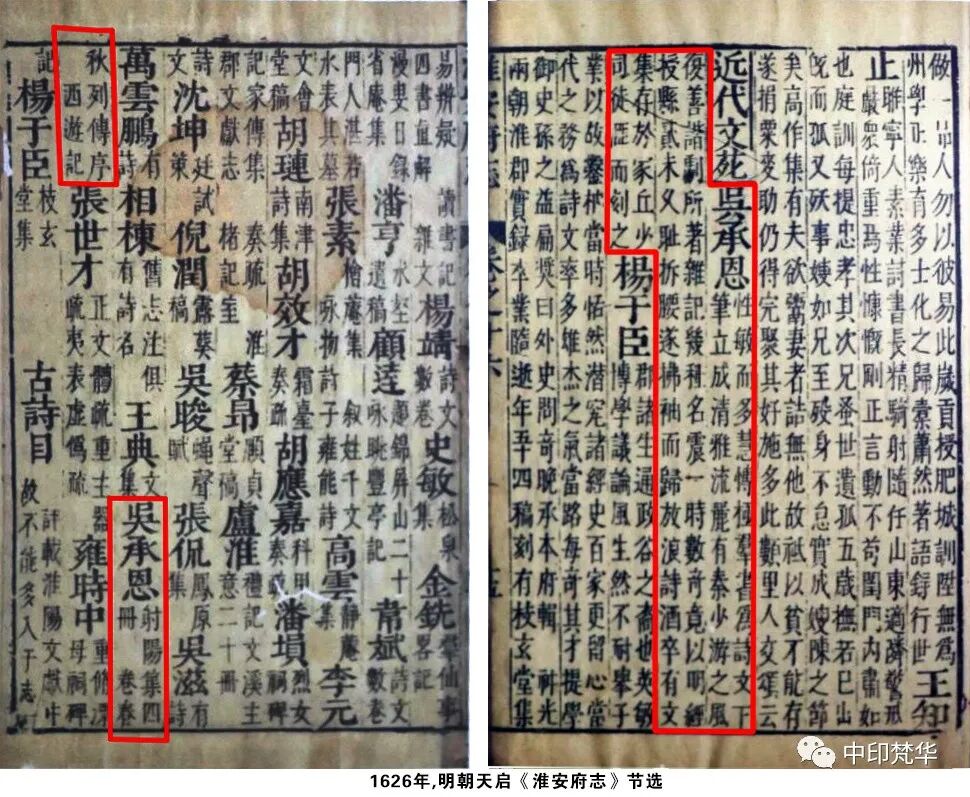 倣一昂人勿以彼易此歲貢授肥城訓陞無爲
州學正樂有多士化之歸橐蕭然著語錄行世 王印
止 聯寧人素業討書長精騎射隨任山東適鄰警
嚴衆倚重焉性慷慨剛正言動不苟閨門內肅如
也庭訓每提忠孝其次兄蚤世遺孤五歲撫若已出
旣而孤又殀事嫂如兄至殁身不怠實成嫂陳之節
矣高作集有夫欲鬻妻者詰無他故祗以貧不能存
遂捐粟麥助仍得完聚其好施多此類里人交頌云
近代文苑 吳承恩 性敏而多慧博極羣書爲詩文下
筆立成清雅流麗有秦少游之風
復善諧劇所著雜記幾種名震一時數奇竟以明經
授縣貳未久恥折腰遂拂袖而歸放浪詩酒卒有文
集存於家丘少
司徒滙而刻之 楊于臣 郡諸生通政谷之裔也英敏
博學議論風生然不耐舉子
業以故鏖棘當時恬然潛究諸經史百家更留心當
代之務爲詩文率多雄杰之氣當路每奇其才提學
御史孫之益扁奬曰外史問奇晚承本府輯 神光
兩朝淮郡實錄 卒業隨逝年五十四稿刻有枝玄堂集
易辨疑 讀書記
四書直解 雜文 楊靖 詩文數卷 史敏 松泉集 金銑
漫叟日錄
省庵集 潘亨 水壑遺稿 顧逵 詠眺豐亭記 常斌 詩文數卷
門人湛若
水表其墓 張素 檜菴集 詠物詩 叙姓千文 高雲 靜菴集 李元
文會
堂稿 胡璉 南津詩集 胡效才 霜臺奏疏 胡應嘉 潘塤
記家傳集 奏疏
郡文獻志 楮記室 蔡昂 頤貞堂稿 盧淮
詩
文 沈坤 廷試策 倪潤 霱葵稿 吳晙 蠅聲賦 張侃 鳳原集 吳滋 有詩
萬雲鵬 有詩 相棟 舊志注俱有詩名 王典 文集 吳承恩 射陽集四冊 卷
秋列傳序
西遊記 張世才 正文體疏重主器疏夷表虛僞疏 雍時中
記 楊于臣 枝玄堂集 古詩目 詳載淮陽文獻
故不能多入于志
1626年,明朝天启《淮安府志》节选
中印梵华